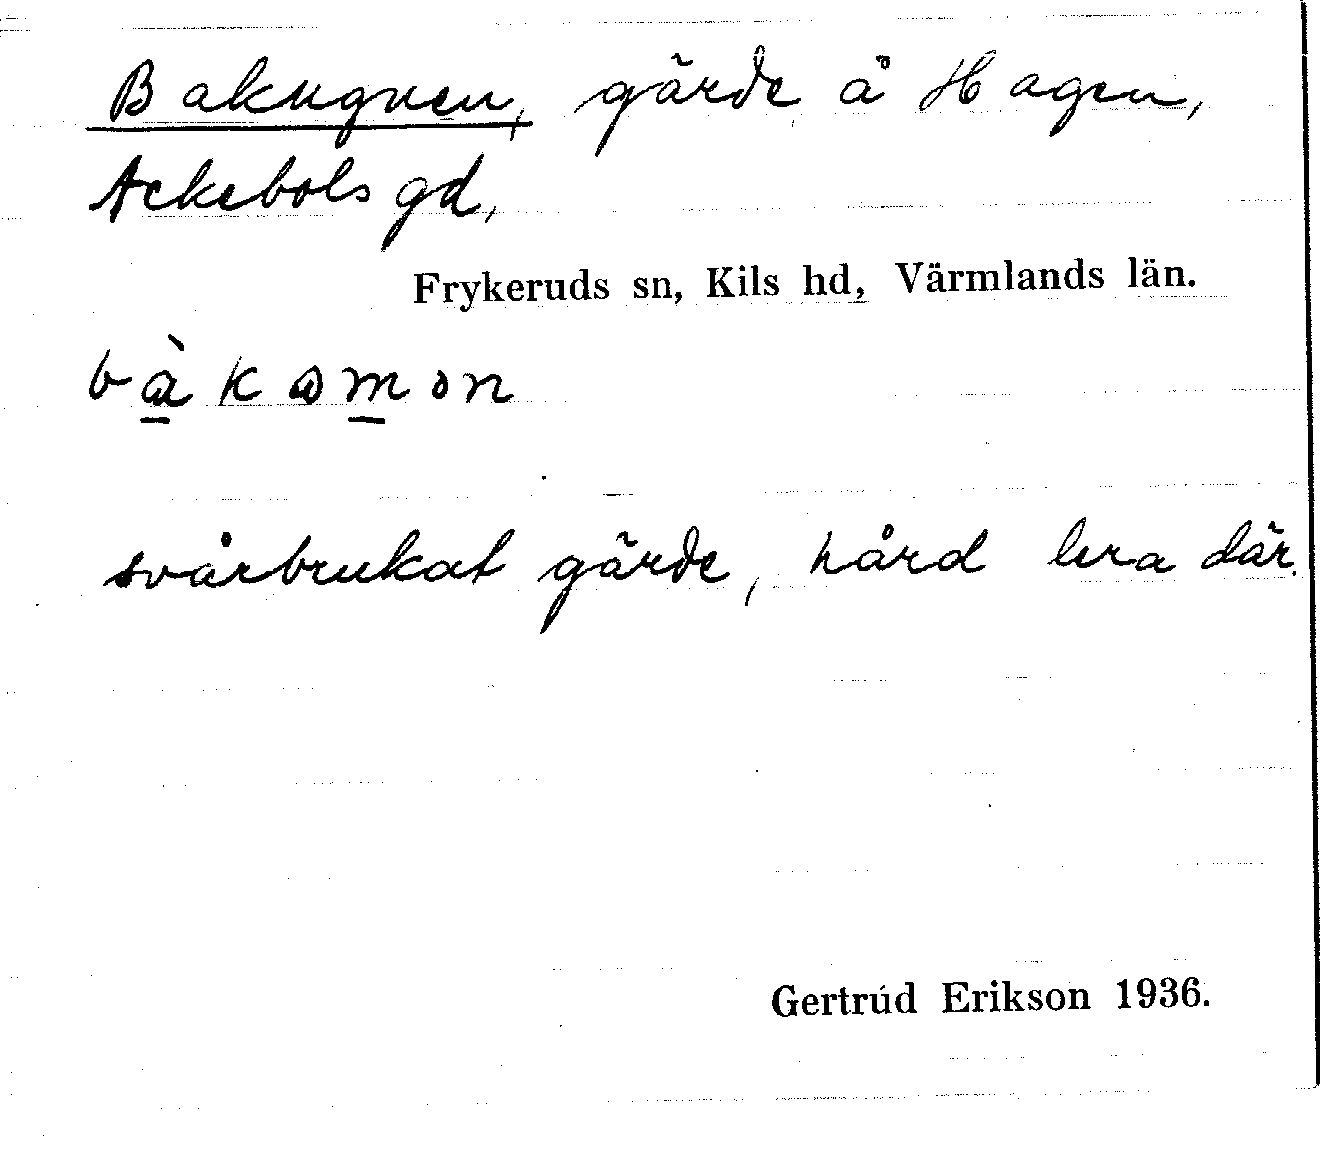 Bakugnen, gärde å Hagen,
Ackebols gd,
Frykeruds sn, Kils hd, Värmlands län.
svårbrukat gärde, hård lera där.
Gertrud Erikson 1936.